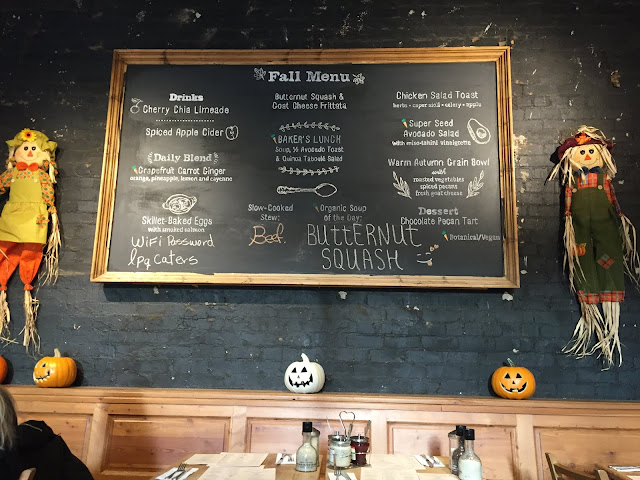 Fall Menu
Drinks
Cherry Chia Limeade
Spiced Apple Cider
Daily Blend
Grapefruit Carrot Ginger
orange, pineapple, lemon and cayenne
Skillet-Baked Eggs
with smoked salmon
WiFi Password
lpq caters
Butternut Squash &
Goat Cheese Frittata
BAKER'S LUNCH
Soup, ½ Avocado Toast
& Quinoa Taboulé Salad
Slow-Cooked
Stew:
Beef.
Organic Soup
of the Day:
BUTTERNUT
SQUASH
Chicken Salad Toast
herbs • caper aioli • celery • apple
Super Seed
Avocado Salad
with miso-tahini vinaigrette
Warm Autumn Grain Bowl
with
roasted vegetables
spiced pecans
fresh goat cheese
Dessert
Chocolate Pecan Tart
Botanical/Vegan